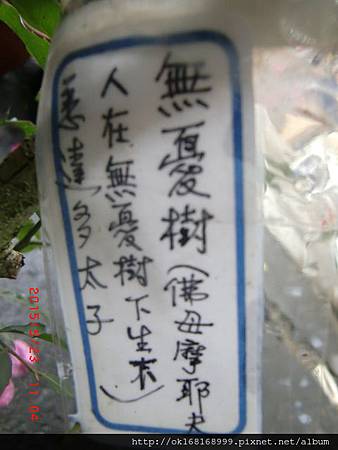 無憂樹(佛母摩耶夫
人在無憂樹下生)
悉達多太子
2015/9/23 11:04
http://ok168168999.pixnet.net/album